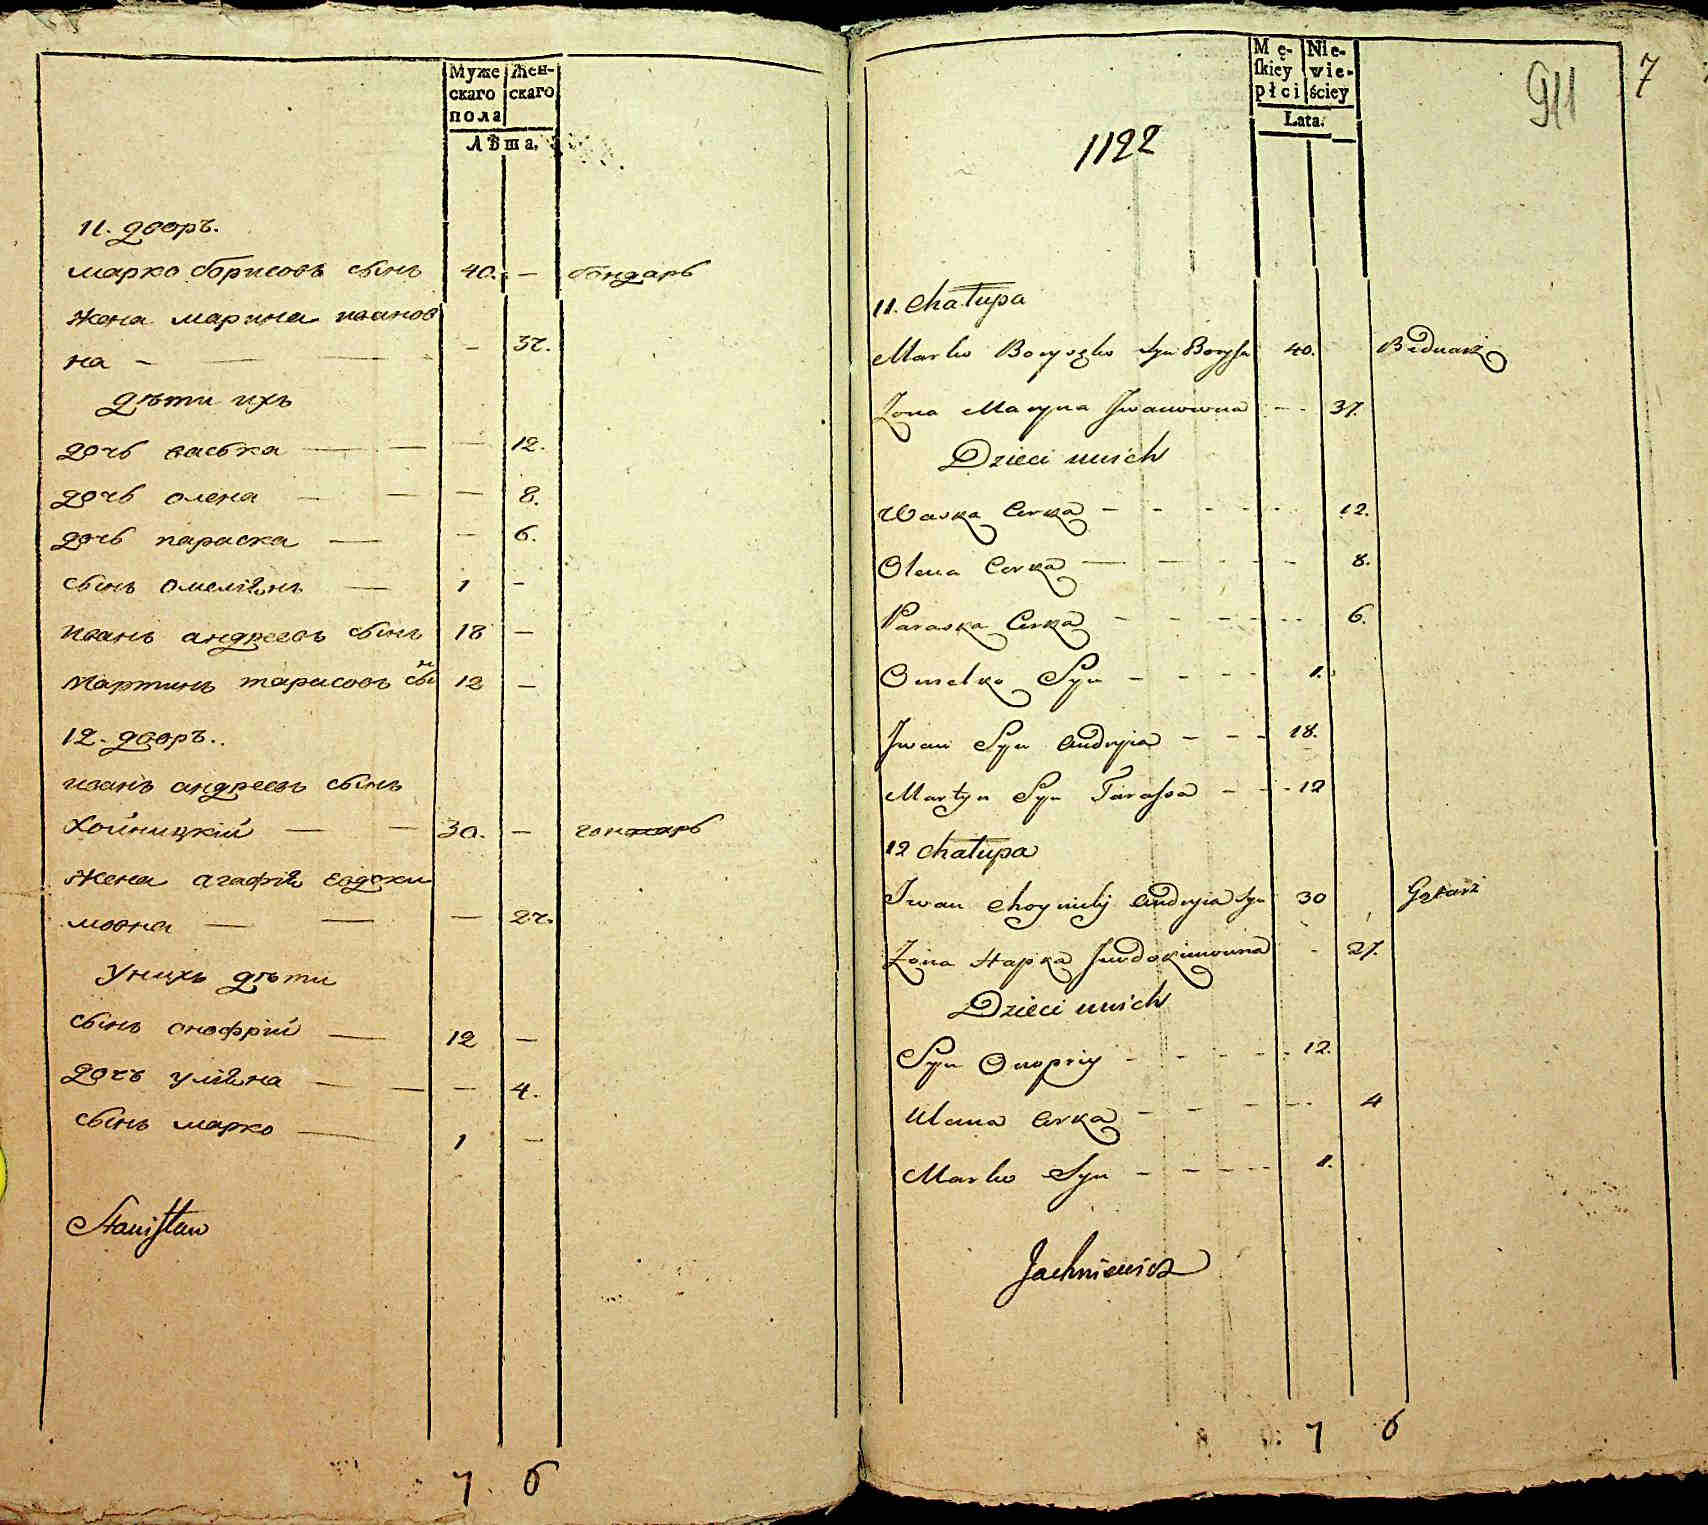 Муже Жен-
скаго скаго
пола
Лѣта.
11. дворъ.
марко борисовъ сынъ 40. — бондарь
жена марина иванов
на — — 37.
дѣти ихъ
дочь васька — — — 12.
дочь олена — — — 8.
дочь параска — — 6.
сынъ омелiянъ — 1 -
иванъ андреевъ сынъ 18 —
мартинъ тарасовъ сынъ 12 —
12. дворъ.
иванъ андреевъ сынъ
хойницкiй — — 30. — гончаръ
жена агафiя евдоки
мовна — — — 27.
у нихъ дѣти
сынъ онофрiй — 12 —
дочъ улiяна — — — 4.
сынъ марко — 1 —
Stanisław
7 6
Mę- Nie-
skiey wie-
płci ściey
Lata.
911 7
1122
11. Chałupa
Marko Boryszko Syn Borysa 40. Bednarz
Żona Maryna Iwanowna - - 37.
Dzieci unich
Waska Corka - - - - - 12.
Olena Corka - - - - - 8.
Paraska Corka - - - - - 6.
Omelko Syn - - - - 1.
Iwan Syn Andryia - - - 18.
Martyn Syn Tarassa - - - 12
12 Chałupa
Iwan Choynicky Andryia Syn 30
Żona Hapka Jewdokimowna - 27.
Dzieci unich
Syn Onopriy - - - - - 12.
Ulana Corka - - - - - 4
Marko Syn - - - - - 1.
Jachniewicz
7 6